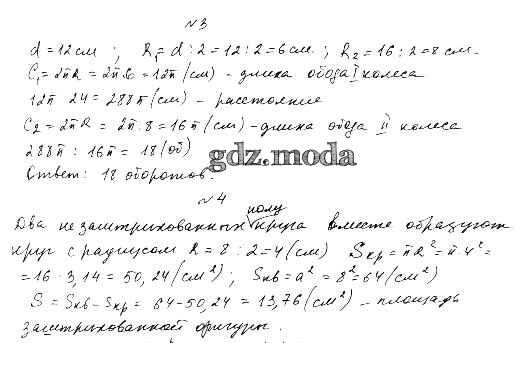 №3
d = 12 см ; R₁ = d : 2 = 12 : 2 = 6 см. ; R₂ = 16 : 2 = 8 см.
C₁ = 2πR = 2π6 = 12π (см) - длина обода I колеса
12π · 24 = 288π (см) - расстояние
C₂ = 2πR = 2π · 8 = 16π (см) - длина обода II колеса
288π : 16π = 18 (об)
gdz.moda
Ответ: 18 оборотов.
№4
Два не заштрихованных полукруга вместе образуют
круг с радиусом R = 8 : 2 = 4 (см) Sкр = πR² = π4² =
= 16 · 3,14 = 50,24 (см²) ; Sкв = a² = 8² = 64 (см²)
S = Sкв - Sкр = 64 - 50,24 = 13,76 (см²) - площадь
заштрихованной фигуры.